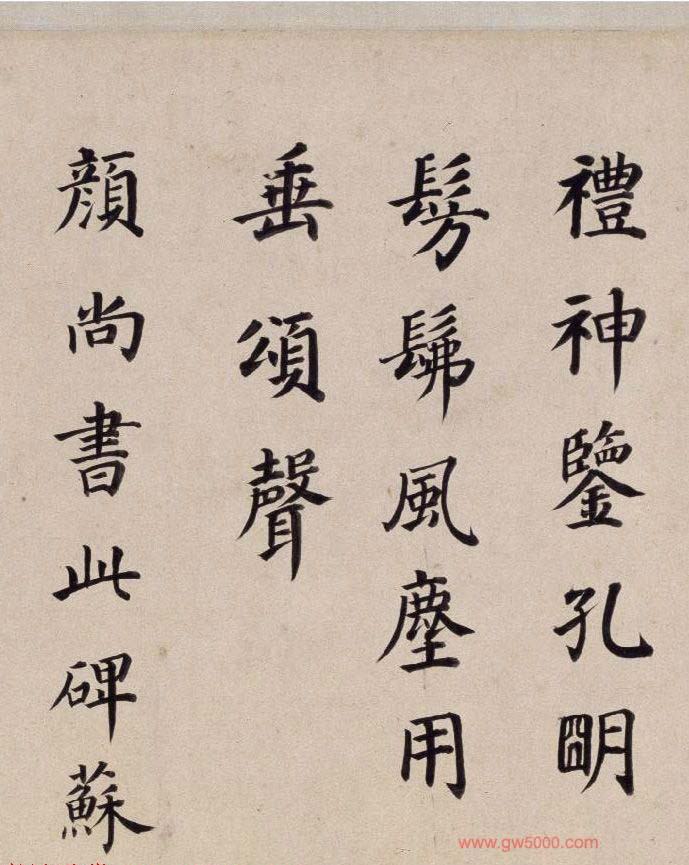 禮神鑒孔明
髣髴風塵用
垂頌聲
顔尚書此碑蘇
www.gw5000.com